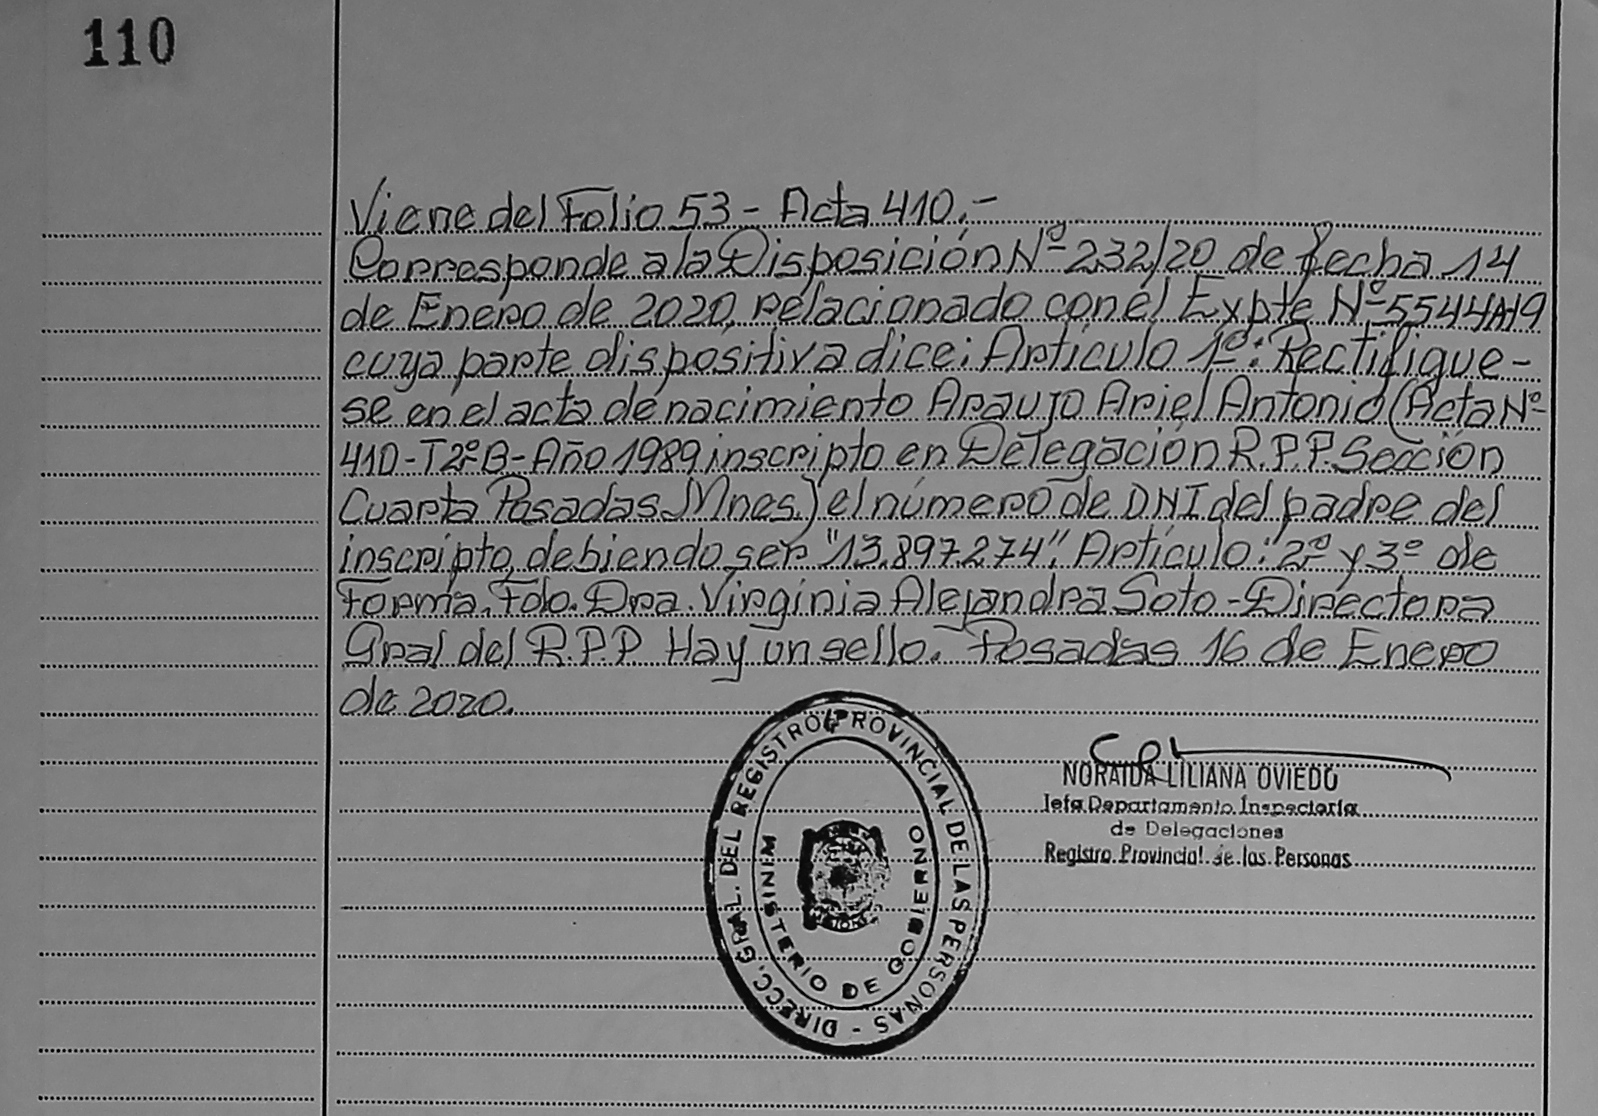 110
Viene del Folio 53 - Acta 410.-
Corresponde a la Disposición Nº 232/20 de fecha 14
de Enero de 2020, relacionado con el Expte Nº 5544A19
cuya parte dispositiva dice: Artículo 1º: Rectifique-
se en el acta de nacimiento Araujo Ariel Antonio (Acta Nº
410-T2ºB-Año 1989 inscripto en Delegación R.P.P. Sección
Cuarta Posadas Mnes.) el número de DNI del padre del
inscripto, debiendo ser "13.897.274". Artículo: 2º y 3º de
Forma. Fdo. Dra. Virginia Alejandra Soto - Directora
Gral del R.P.P. Hay un sello. Posadas 16 de Enero
de 2020.
DIRECC. GRAL. DEL REGISTRO PROVINCIAL DE LAS PERSONAS -
MINISTERIO DE GOBIERNO
NORAIDA LILIANA OVIEDO
Jefa Departamento Inspectoría
de Delegaciones
Registro Provincial de las Personas